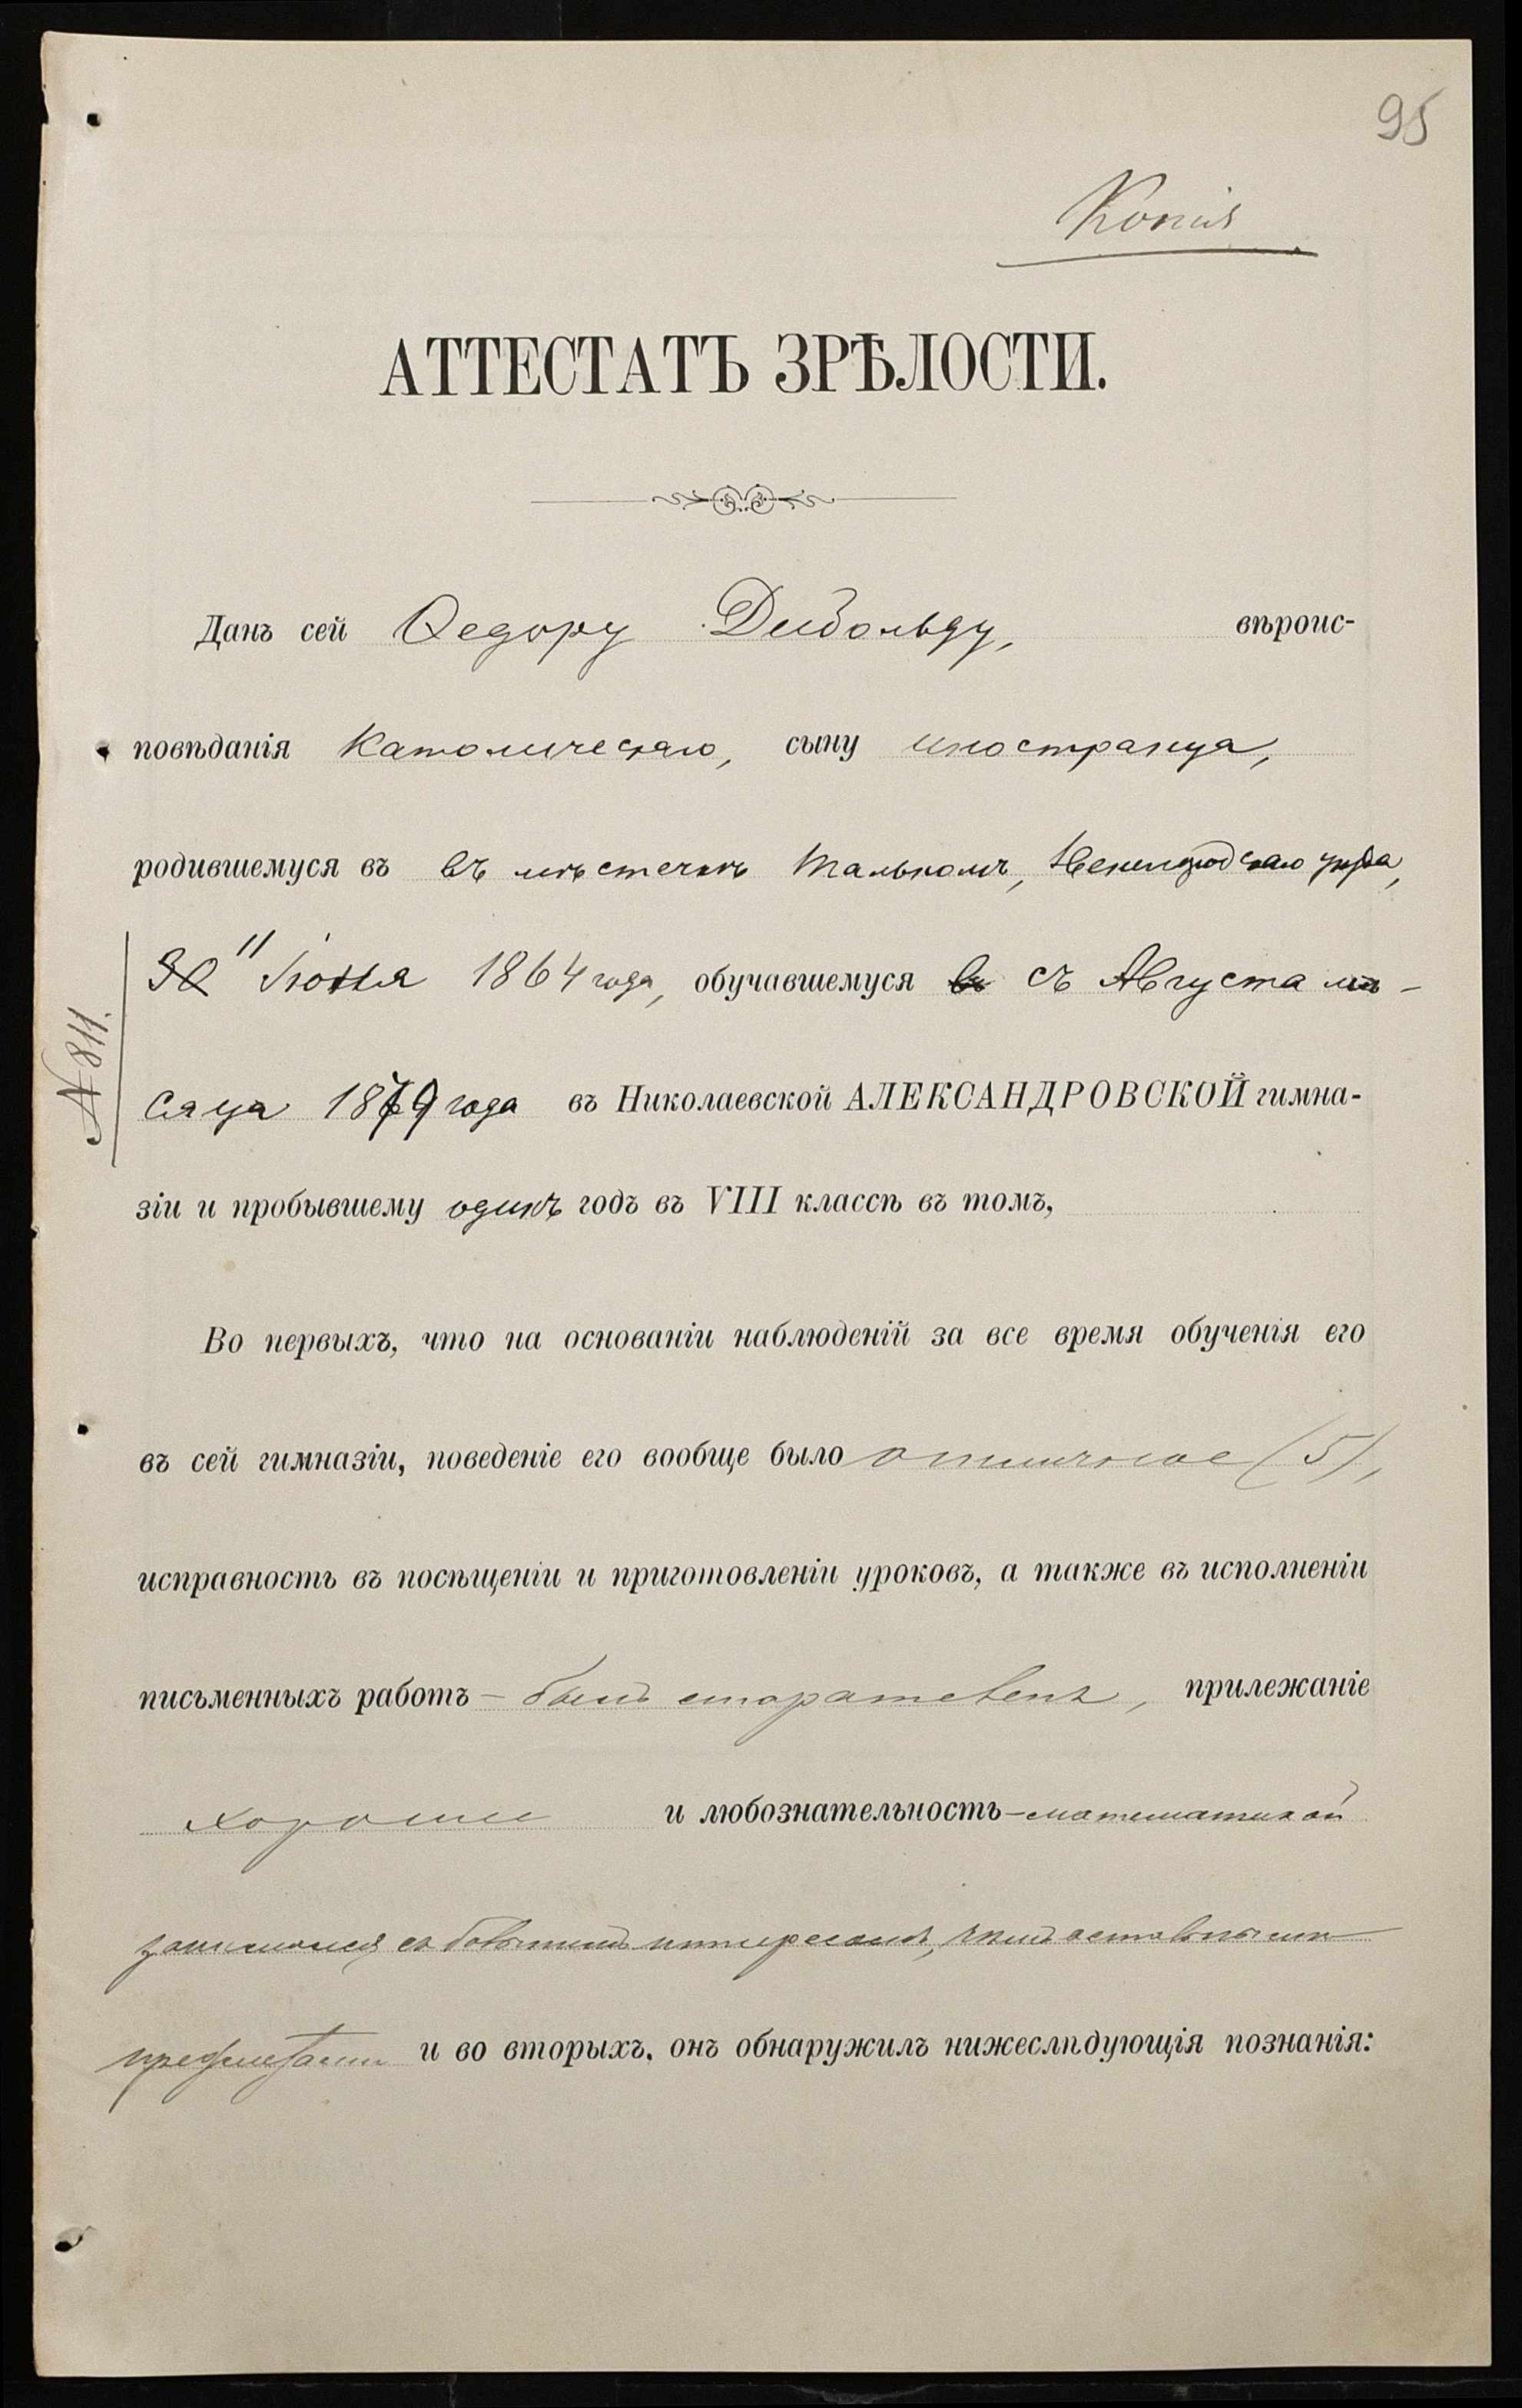 95
Копія
АТТЕСТАТЪ ЗРѢЛОСТИ.
Данъ сей Ѳедору Дибольду, вѣроис-
повѣданія Католическаго, сыну иностранца,
родившемуся въ въ мѣстечкѣ Тальномъ, Звенигородскаго уѣзда,
30" Іюня 1864 года, обучавшемуся въ съ Августа мѣ-
сяца 1879 года въ Николаевской АЛЕКСАНДРОВСКОЙ гимна-
№ 811.
зіи и пробывшему одинъ годъ въ VIII классѣ въ томъ,
Во первыхъ, что на основаніи наблюденій за все время обученія его
въ сей гимназіи, поведеніе его вообще было отличное (5),
исправность въ посѣщеніи и приготовленіи уроковъ, а также въ исполненіи
письменныхъ работъ – былъ старателенъ, прилежаніе
хорошее и любознательность – математикой
занимался съ большимъ интересомъ, чѣмъ остальными
предметами и во вторыхъ, онъ обнаружилъ нижеслѣдующія познанія: